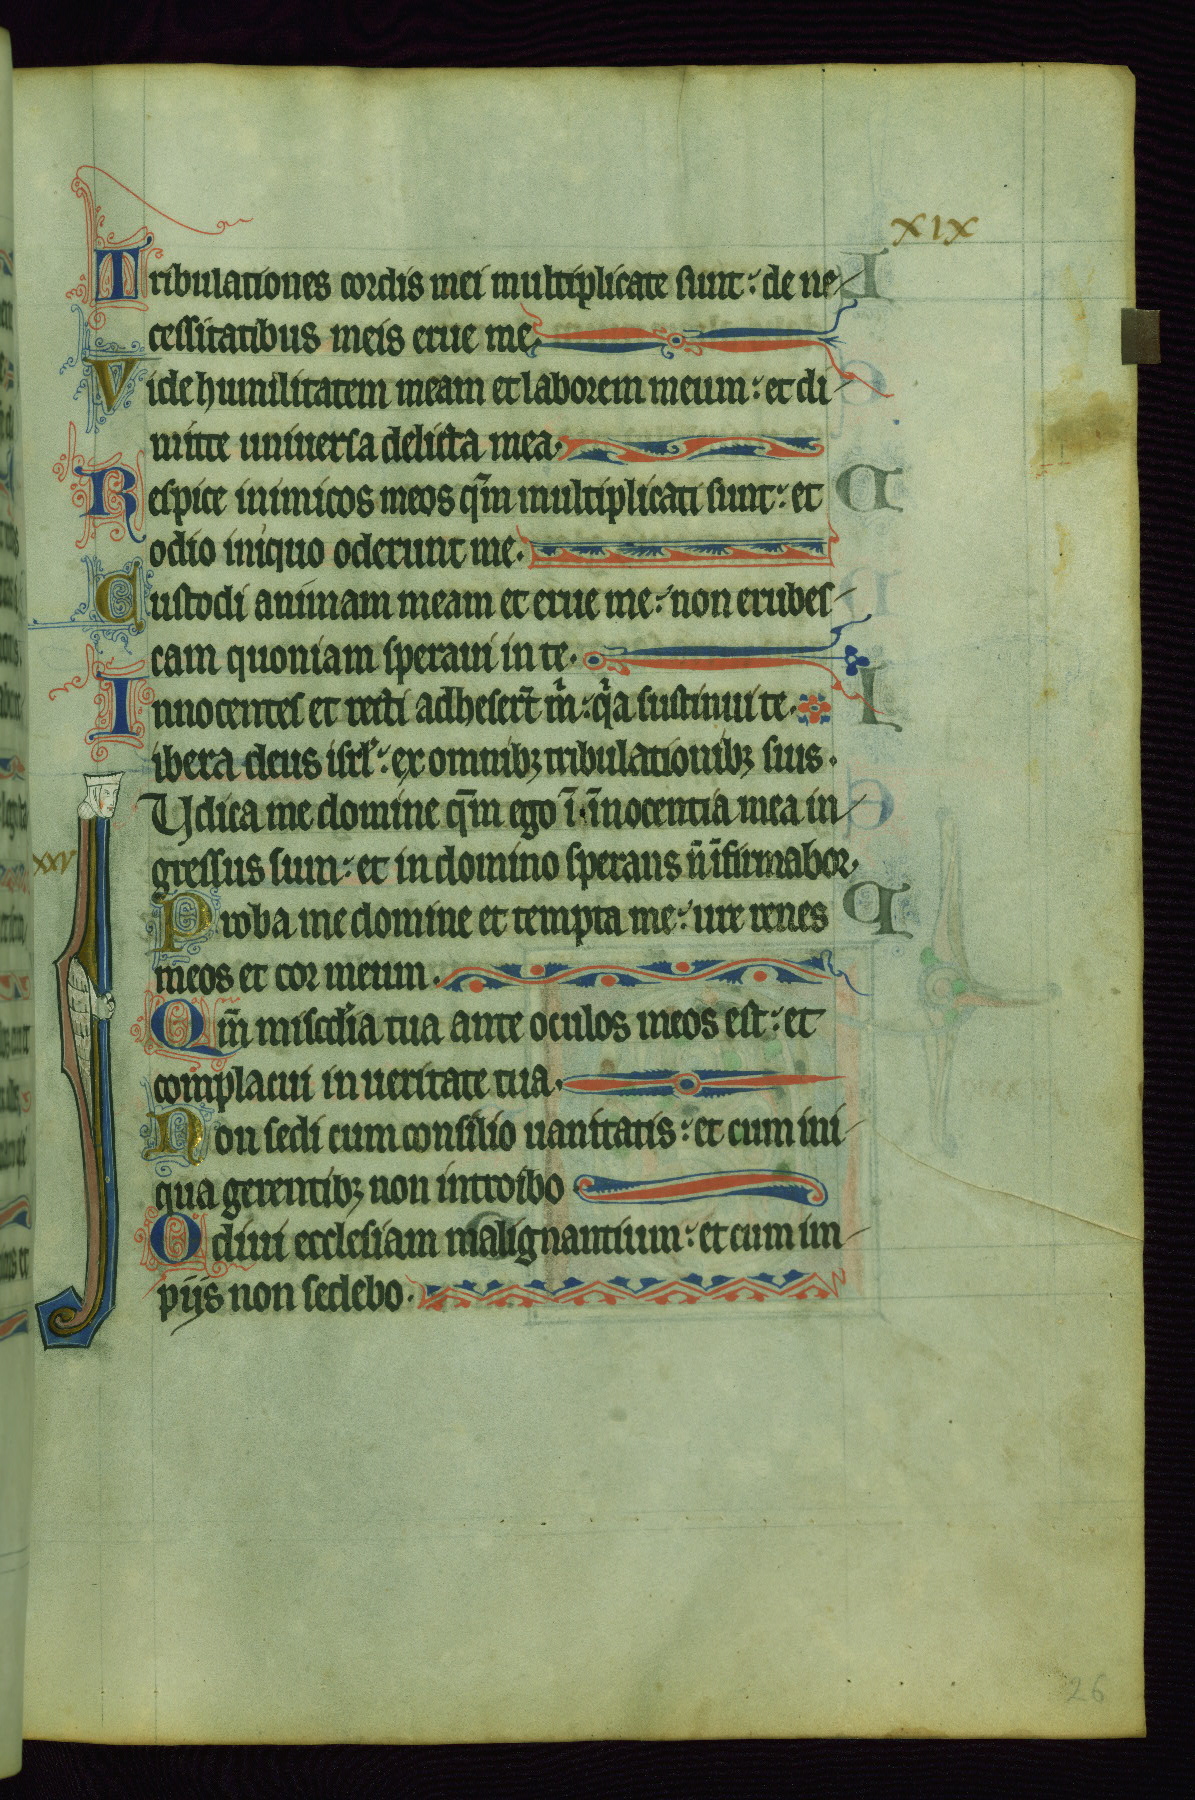 XIX
Tribulationes cordis mei multiplicate sunt: de ne
cessitatibus meis erue me.
Vide humilitatem meam et laborem meum: et di
mitte uniuersa delicta mea.
Respice inimicos meos qm̄ multiplicati sunt: et
odio iniquo oderunt me.
Custodi animam meam et erue me: non erubes
cam quoniam speraui in te.
Innocentes et recti adhesert̄ m̄: qa sustinui te.
ibera deus isrl': ex omnibꝫ tribulationibꝫ suis.
XXV
Iudica me domine qm̄ ego ī īnocentia mea in
gressus sum: et in domino sperans n̄ īfirmabor.
Proba me domine et tempta me: ure renes
meos et cor meum.
Qm̄ miscd̄ia tua ante oculos meos est: et
complacui in ueritate tua.
Non sedi cum consilio uanitatis: et cum ini
qua gerentibꝫ non introibo
Odiui ecclesiam malignantium: et cum im
pijs non sedebo.
26